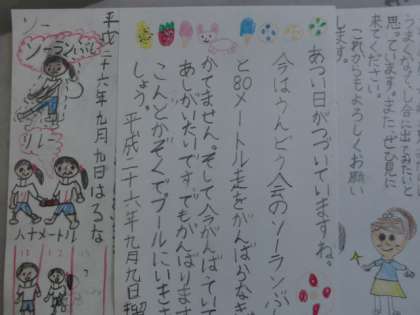 思っています。また、ぜひ見に
来てください。
これからもよろしくお願い
します。
あつい日がつづいていますね。
今はうんどう会のソーランぶ
と80メートル走をがんばらなき
かてません。そして今がんばっていて
あしがいたいです。でもがんばります
こんどかぞくでプールにいきま
しょう。平成二十六年九月九日
平成二十六年九月九日はるな
ソー
ソーランぶし
リレー
八十メートル